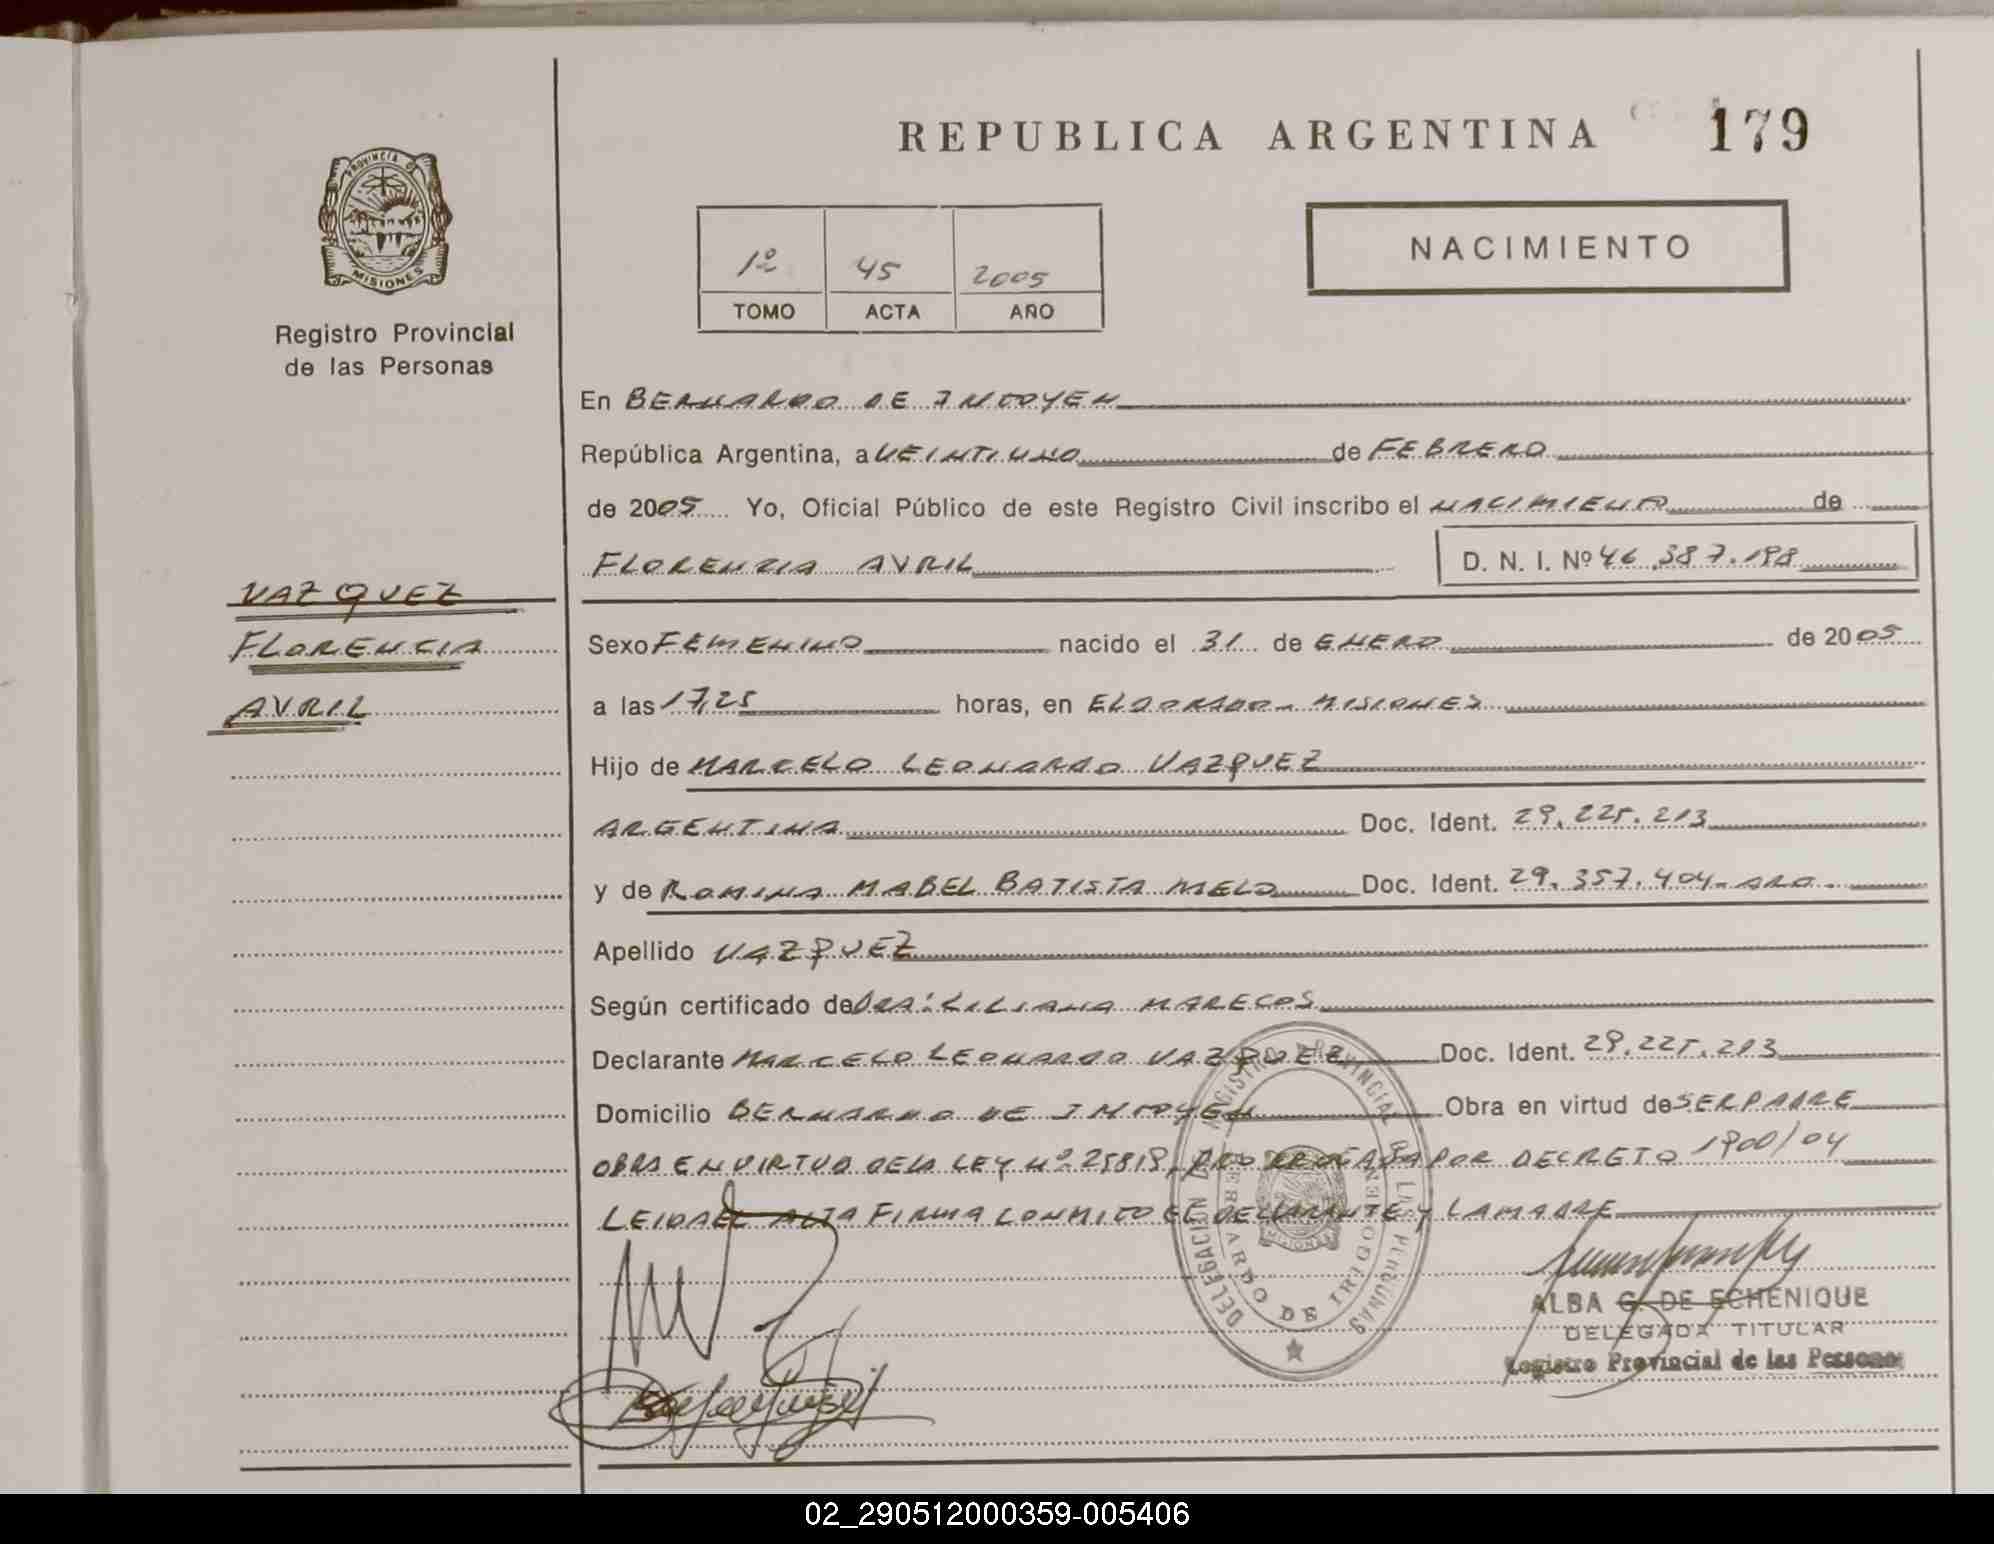 REPUBLICA ARGENTINA 179
PROVINCIA DE
MISIONES
Registro Provincial
de las Personas
1º 45 2005
TOMO ACTA AÑO
NACIMIENTO
En BERNARDO DE IRIGOYEN
República Argentina, a VEINTIUNO de FEBRERO
de 2005 Yo, Oficial Público de este Registro Civil inscribo el NACIMIENTO de
FLORENCIA AVRIL D. N. I. Nº 46.387.198
VAZQUEZ
FLORENCIA
AVRIL
Sexo FEMENINO nacido el 31 de ENERO de 2005
a las 17,25 horas, en ELDORADO - MISIONES
Hijo de MARCELO LEONARDO VAZQUEZ
ARGENTINA Doc. Ident. 29.225.213
y de ROMINA MABEL BATISTA MELO Doc. Ident. 29.357.404- ARG.
Apellido VAZQUEZ
Según certificado de DRA: LILIANA MARECOS
Declarante MARCELO LEONARDO VAZQUEZ Doc. Ident. 29.225.213
Domicilio BERNARDO DE IRIGOYEN Obra en virtud de SER PADRE
OBRA EN VIRTUD DE LA LEY Nº 25819, PRORROGADA POR DECRETO 1900/04
LEIDA EL ACTA FIRMA CONMIGO EL DECLARANTE Y LA MADRE
DELEGACION DEL REGISTRO PROVINCIAL DE LAS PERSONAS
BERNARDO DE IRIGOYEN
MISIONES
ALBA G. DE ECHENIQUE
DELEGADA TITULAR
Registro Provincial de las Personas
02_290512000359-005406